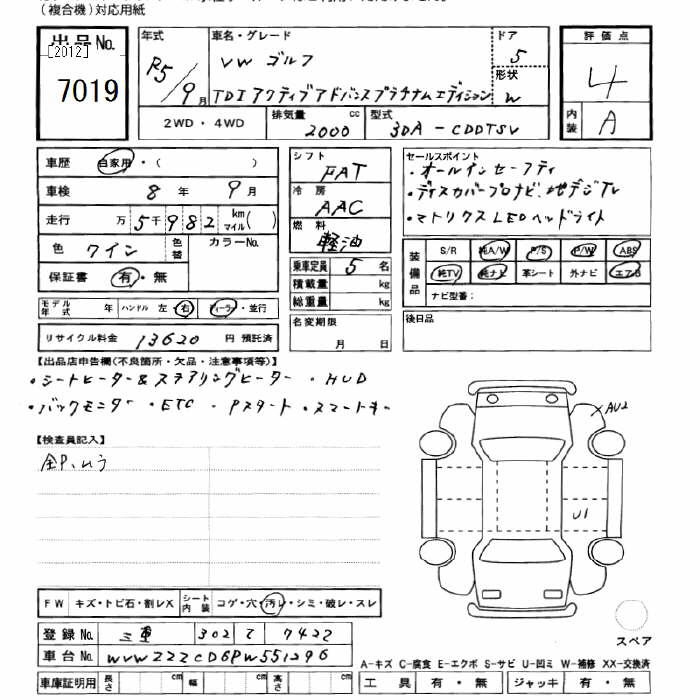 （複合機）対応用紙
出品No.
[2012]
7019
年式
R5/9月
車名・グレード
VW ゴルフ
TDI アクティブアドバンスプラチナムエディション
ドア
5
形状
W
評価点
4
内装
A
2WD・4WD
排気量
2000
cc
型式
3DA-CDDTSV
車歴
自家用・（　）
車検
8年 9月
走行
万 5千982 km マイル（　）
色
ワイン
色替
カラーNo.
保証書
有・無
モデル年式
年
ハンドル 左 右
ディーラー・並行
リサイクル料金 13620 円 預託済
シフト
FAT
冷房
AAC
燃料
軽油
乗車定員 5名
積載量 kg
総重量 kg
名変期限
月 日
セールスポイント
・オールインセーフティ
・ディスカバープロナビ、地デジTV
・マトリクスLEDヘッドライト
装備品
S/R 純A/W P/S P/W ABS
純TV 純ナビ 革シート 外ナビ エアB
ナビ型番：
後日品
【出品店申告欄（不良箇所・欠品・注意事項等）】
・シートヒーター&ステアリングヒーター ・HUD
・バックモニター ・ETC ・Pスタート ・スマートキー
【検査員記入】
全P、ムラ
AU2
U1
スペア
FW キズ・トビ石・割レX
シート内装 コゲ・穴・汚レ・シミ・破レ・スレ
登録No. 三重 302 7422
車台No. WVWZZZCD6PW551296
車庫証明用 長さ cm 幅 cm 高さ cm
A-キズ C-腐食 E-エクボ S-サビ U-凹ミ W-補修 XX-交換済
工具 有・無 ジャッキ 有・無